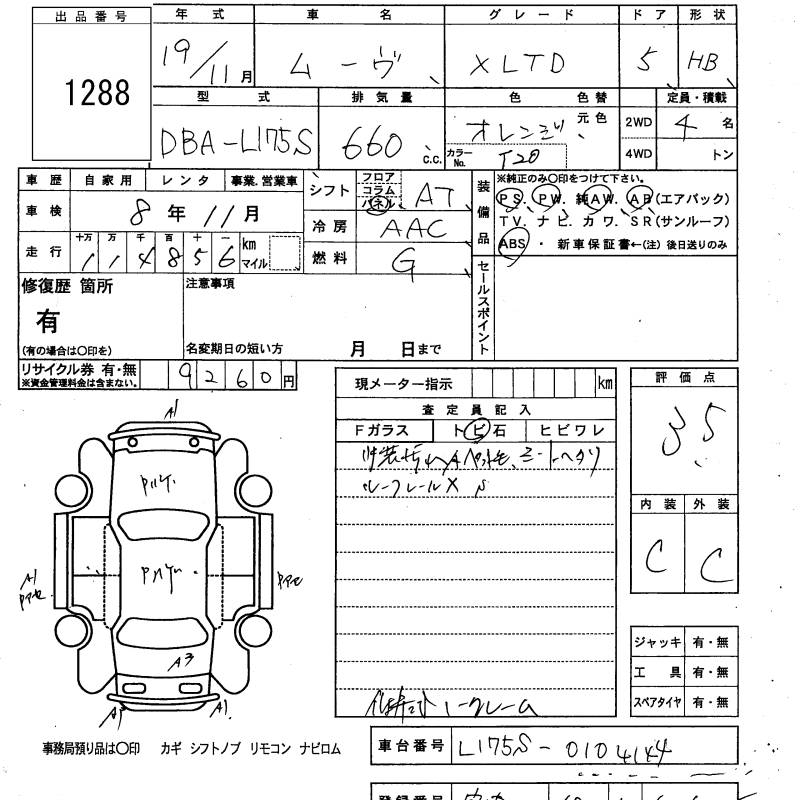 出品番号 年式 車名 グレード ドア 形状
1288 19/11月 ムーヴ XLTD 5 HB
型式 排気量 色 色替 定員・積載
DBA-L175S 660 C.C. オレンジ 元色 2WD 4名
カラーNo. T20 4WD トン
車歴 自家用 レンタ 事業.営業車 シフト フロア コラム パネル AT
装備品 ※純正のみ〇印をつけて下さい。
車検 8年11月 冷房 AAC
PS. PW. 純AW. AB(エアバック)
TV. ナビ. カワ. SR(サンルーフ)
走行 十万 万 千 百 十 一 km マイル 燃料 G
1 1 4 8 5 6
ABS ・ 新車保証書←(注) 後日送りのみ
修復歴 箇所 注意事項 セールスポイント
有
(有の場合は〇印を) 名変期日の短い方 月 日まで
リサイクル券 有・無 9260円
※資金管理料金は含まない。
現メーター指示 km 評価点
査定員記入 3.5
Fガラス トビ石 ヒビワレ
A1
ルーフレールX
内装 外装
C C
A1
A3
A1 A1
ジャッキ 有・無
工具 有・無
スペアタイヤ 有・無
事務局預り品は〇印 カギ シフトノブ リモコン ナビロム
車台番号 L175S-0104144
登録番号